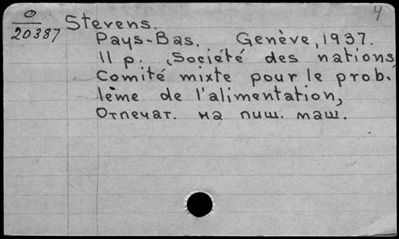 4
O
20387
Stevens.
Pays-Bas. Genève, 1937.
11 p. (Société des nations,
Comité mixte pour le prob-
lème de l'alimentation,
Отпечат. на пиш. маш.